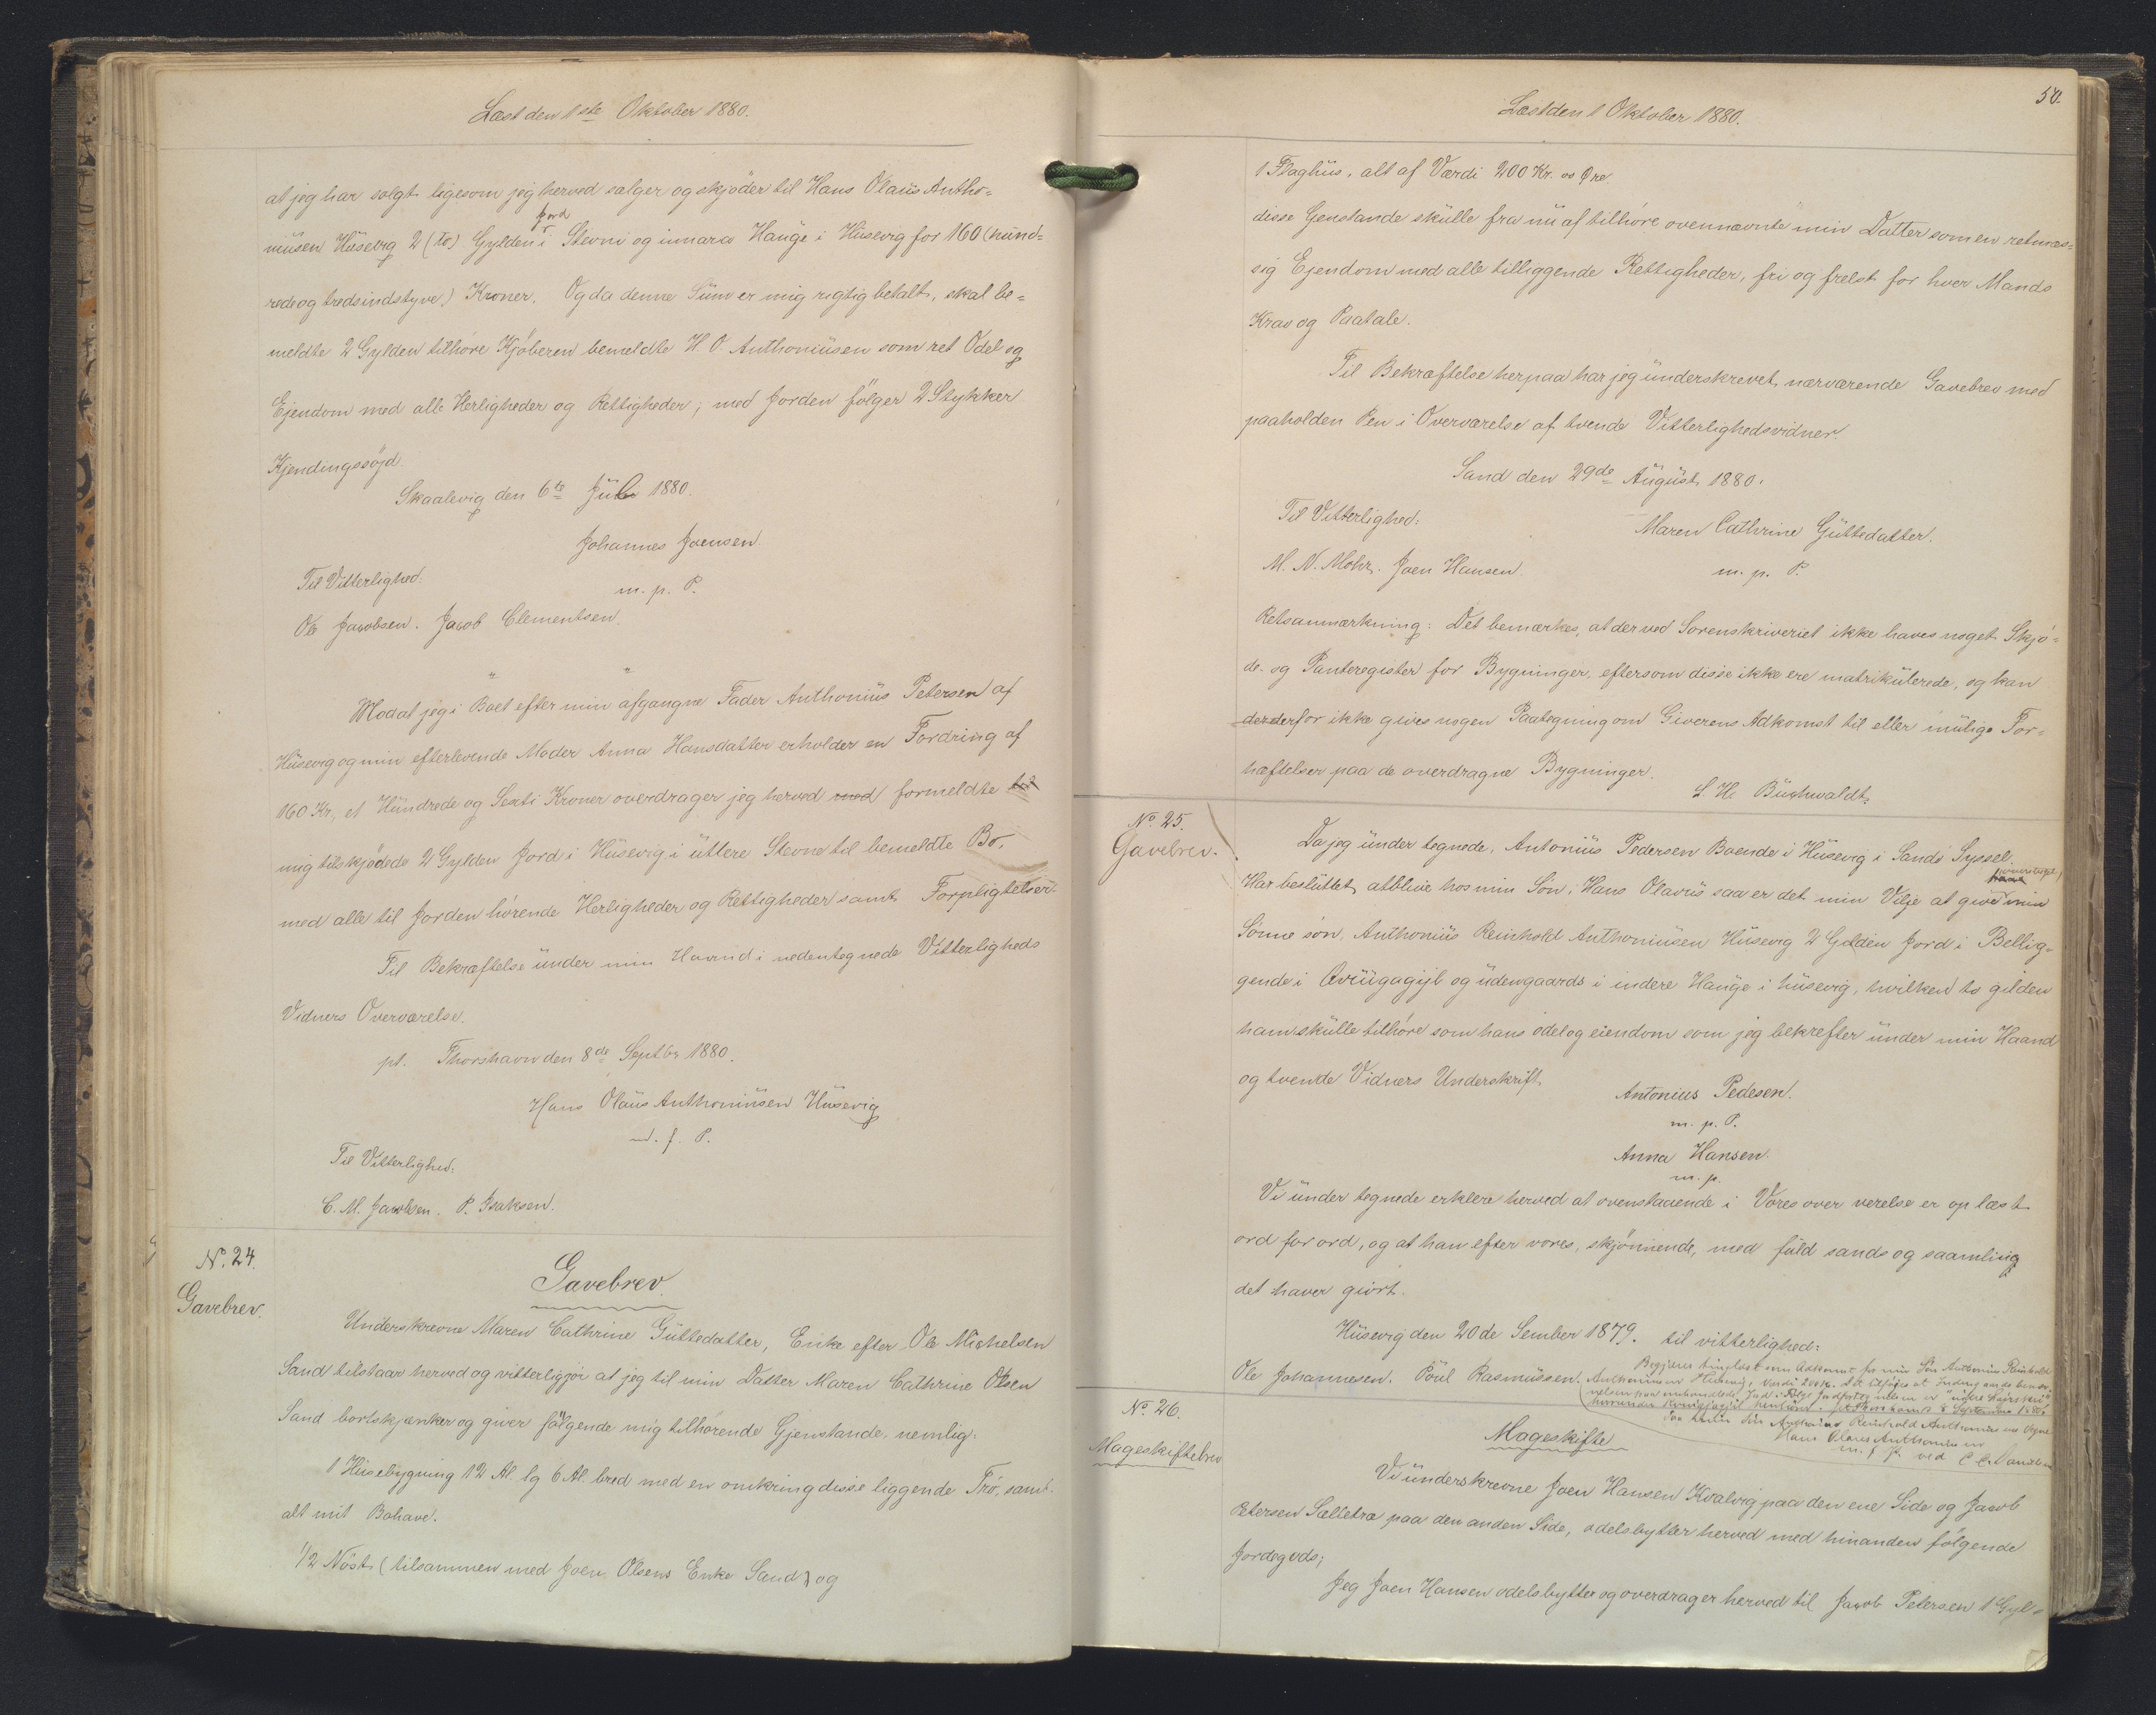 Læst den 1ste Oktober 1880.
at jeg har solgt ligesom jeg herved sælger og skjøder til Hans Olaüs Antho-
niüsen Hüsevig 2 (to) Gylden Jord i Stevni og innara Hauge i Hüsevig for 160 (hünd-
rede og tredsindstyve) Kroner. Og da denne Süm er mig rigtig betalt, skal be-
meldte 2 Gylden tilhøre Kjøberen bemeldte H. O. Anthoniüsen som ret Odel og
Ejendom med alle Herligheder og Rettigheder; med Jorden følger 2 Stykker
Kjendingssøjd.
Skaalevig den 6te Jüli 1880.
Johannes Joensen.
Til Vitterlighed:
m. p. P.
Ole Jacobsen. Jacob Clementsen.
" "
Mod at jeg i Boet efter min afgangne Fader Anthoniüs Petersen af
Hüsevig og min efterlevende Moder Anna Hansdatter erholder en Fordring af
160 Kr, et Hündrede og Sexti Kroner overdrager jeg herved med formeldte til
mig tilskjødede 2 Gylden Jord i Hüsevig i üttere Stevne til bemeldte Bo,
med alle til Jorden hørende Herligheder og Rettigheder samt Forpligtelser.
Til Bekræftelse ünder min Haand i nedentegnede Vitterligheds
Vidners Overværelse.
pt. Thorshavn den 8de Septbr 1880.
Hans Olaüs Anthoniüsen Hüsevig
m. f. P.
Til Vitterlighed:
C. M. Jacobsen. P. Isaksen.
No. 24.
Gavebrev.
Gavebrev.
Underskrevne Maren Cathrine Güttedatter, Enke efter Ole Michelsen
Sand tilstaar herved og vitterliggjør at jeg til min Datter Maren Cathrine Olsen
Sand bortskjænker og giver følgende mig tilhørende Gjenstande, nemlig:
1 Hüsebygning 12 Al. lg 6 Al. bred med en omkring disse liggende Trø, samt
alt mit Bohave.
1/2 Nøst (tilsammen med Joen Olsens Enke Sand) og
50.
Læst den 1 Oktober 1880.
1 Flaghüs, alt af Værdi 200 Kr. 00 Øre
disse Genstande skülle fra nü af tilhøre ovennævnte min Datter som en retmæs-
sig Ejendom med alle tilliggende Rettigheder, fri og frelst for hver Mands
Krav og Paatale.
Til Bekræftelse herpaa har jeg ünderskrevet nærværende Gavebrev med
paaholden Pen i Overværelse af tvende Vitterlighedsvidner.
Sand den 29de Aügüst 1880.
Til Vitterlighed:
Maren Cathrine Güttedatter.
M. N. Mohr. Joen Hansen.
m. p. P.
Retsanmærkning: Det bemærkes, at der ved Sorenskriveriet ikke haves noget Skjø-
de- og Panteregister for Bygninger, eftersom disse ikke ere matrikülerede, og kan
der derfor ikke gives nogen Paategning om Giverens Adkomst til eller mülige For-
hæftelser paa de overdragne Bygninger.
L. H. Büchwaldt.
No. 25.
Gavebrev.
Da jeg ünder tegnede, Antoniüs Pedersen Boende i Hüsevig i Sandø Syssel.
Har beslüttet atblive hos min Søn, Hans Olavüs saa er det min Vilje at give min
Sønne søn, Anthoniüs Reinhold Anthoniüsen Hüsevig 2 Gylden Jord i Bellig-
gende i Qviügagijl og üdengaards i indere Hauge i hüsevig, hvilken to gilden
ham skülle tilhøre som hans odel og eiendom som jeg bekrefter ünder min Haand
og tvende Vidners Underskrift.
Antonius Pedesen.
m. p. P.
Anna Hansen.
m. p.
Vi ünder tegnede erklere herved at ovenstaaende i Vores over verelse er op læst
ord for ord, og at han efter vores, skjønnende, med füld sands og saamling
det haver giort.
Hüsevig den 20de Sember 1879. til vitterlighed:
Ole Johannesen. Poul Rasmüssen.
Begjæres tinglæst som Adkomst for min Søn Anthonius Reinhold
Anthoniussen Husevig, Værdi 200 K. Det tilføies at
Thorshavn d. 8 September 1880.
Paa min Søn Anthonius Reinhold Anthoniussens Vegne
Hans Olaus Anthoniussen
m. f. P. ved
No. 26.
Mageskiftebrev
Mageskifte
Vi ünderskrevne Joen Hansen Kvalvig paa den ene Side og Jacob
Petersen Sælletræ paa den anden Side, odelsbytter herved med hinanden følgende
Jordegods;
Jeg Joen Hansen odelsbytter og overdrager herved til Jacob Petersen 1 Gyl-